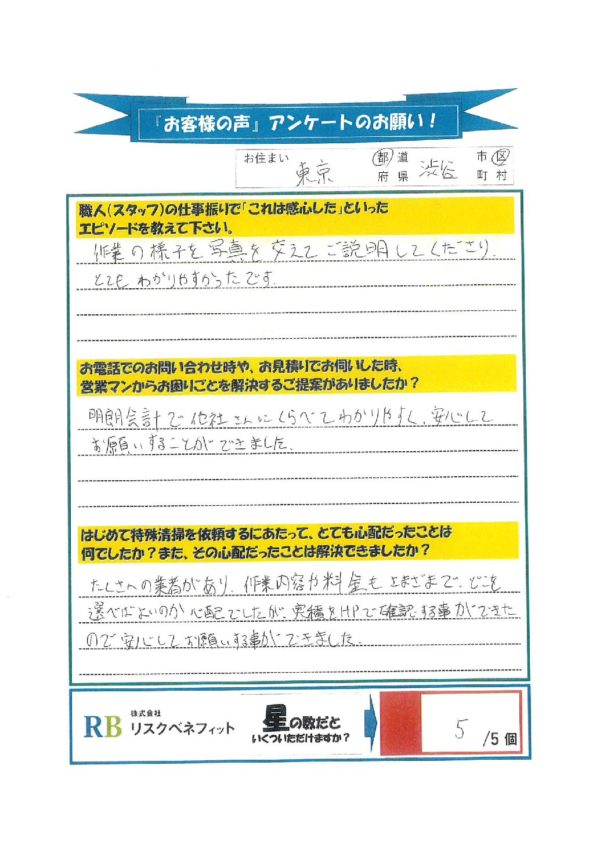 『お客様の声』アンケートのお願い！
お住まい 東京 都道府県 渋谷 市区町村
職人（スタッフ）の仕事振りで「これは感心した」といった
エピソードを教えて下さい。
作業の様子を写真を交えてご説明してくださり、
とてもわかりやすかったです。
お電話でのお問い合わせ時や、お見積りでお伺いした時、
営業マンからお困りごとを解決するご提案がありましたか？
明朗会計で他社さんにくらべてわかりやすく、安心して
お願いすることができました。
はじめて特殊清掃を依頼するにあたって、とても心配だったことは
何でしたか？また、その心配だったことは解決できましたか？
たくさんの業者があり、作業内容や料金もさまざまで、どこを
選べばよいのか心配でしたが、実積をHPで確認する事ができた
ので安心してお願いする事ができました。
RB 株式会社
リスクベネフィット
星の数だと
いくついただけますか？
5 /5個